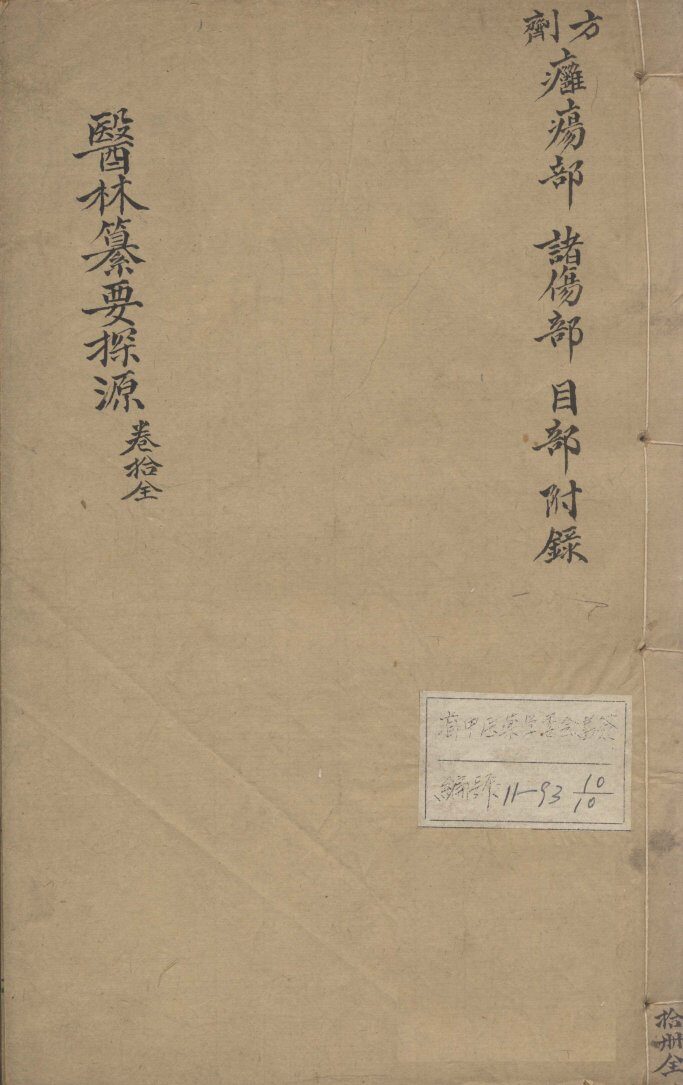 方劑
癰瘍部 諸傷部 目部 附錄
醫林纂要探源
卷拾全
編號 11-93 10/10
拾冊全